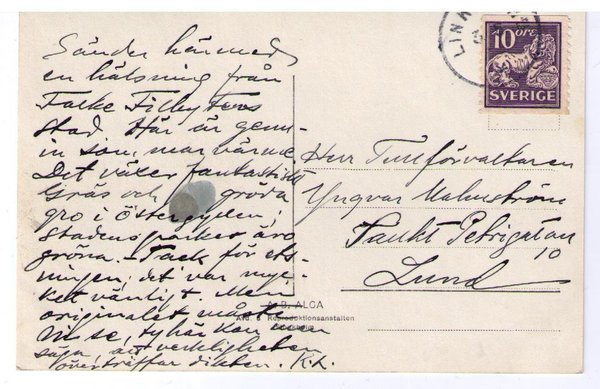 Sänder härmed
en hälsning från
Falke Filbyters
stad. Här är genu-
in sommarvärme.
Det växer fantastiskt
Gräs och gröda
gro i Östergyllen;
stadens parker äro
gröna. - Tack för ets-
ningen; det var myc-
ket vänligt. Men
originalet måste
Ni se, ty här kan man
säga, att verkligheten
överträffar dikten. K.L.
LINK
10 ÖRE
SVERIGE
Herr Tullförvaltaren
Yngvar Malmström
Sankt Petrigatan
10
Lund
A.B. ALGA
Avd. Reproduktionsanstalten